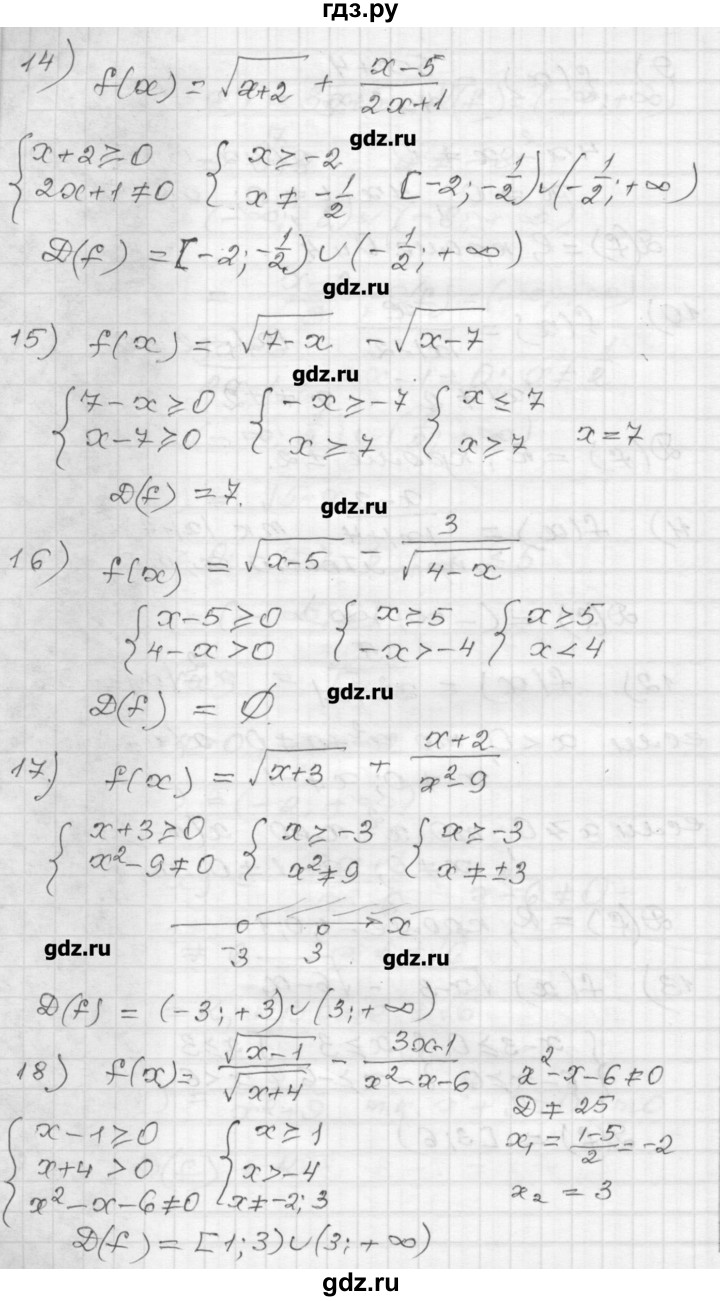 гдз.ру
14) f(x) = √(x+2) + (x-5)/(2x+1)
gdz.ru
{ x+2 ≥ 0 { x ≥ -2
{ 2x+1 ≠ 0 { x ≠ -1/2 [-2; -1/2) ∪ (-1/2; +∞)
D(f) = [-2; -1/2) ∪ (-1/2; +∞)
gdz.ru
15) f(x) = √(7-x) - √(x-7)
gdz.ru
{ 7-x ≥ 0 { -x ≥ -7 { x ≤ 7
{ x-7 ≥ 0 { x ≥ 7 { x ≥ 7 x = 7
D(f) = 7.
gdz.ru
16) f(x) = √(x-5) - 3/√(4-x)
{ x-5 ≥ 0 { x ≥ 5 { x ≥ 5
{ 4-x > 0 { -x > -4 { x < 4
gdz.ru
D(f) = ∅.
17) f(x) = √(x+3) + (x+2)/(x²-9)
{ x+3 ≥ 0 { x ≥ -3 { x ≥ -3
{ x²-9 ≠ 0 { x² ≠ 9 { x ≠ ±3
x
-3 3
gdz.ru gdz.ru
D(f) = (-3; +3) ∪ (3; +∞)
18) f(x) = √(x-1)/√(x+4) - (3x-1)/(x²-x-6) x²-x-6 ≠ 0
D ≠ 25
{ x-1 ≥ 0 { x ≥ 1 x₁ = (1-5)/2 = -2
{ x+4 > 0 { x > -4
{ x²-x-6 ≠ 0 { x ≠ -2; 3 x₂ = 3
D(f) = [1; 3) ∪ (3; +∞)
gdz.ru